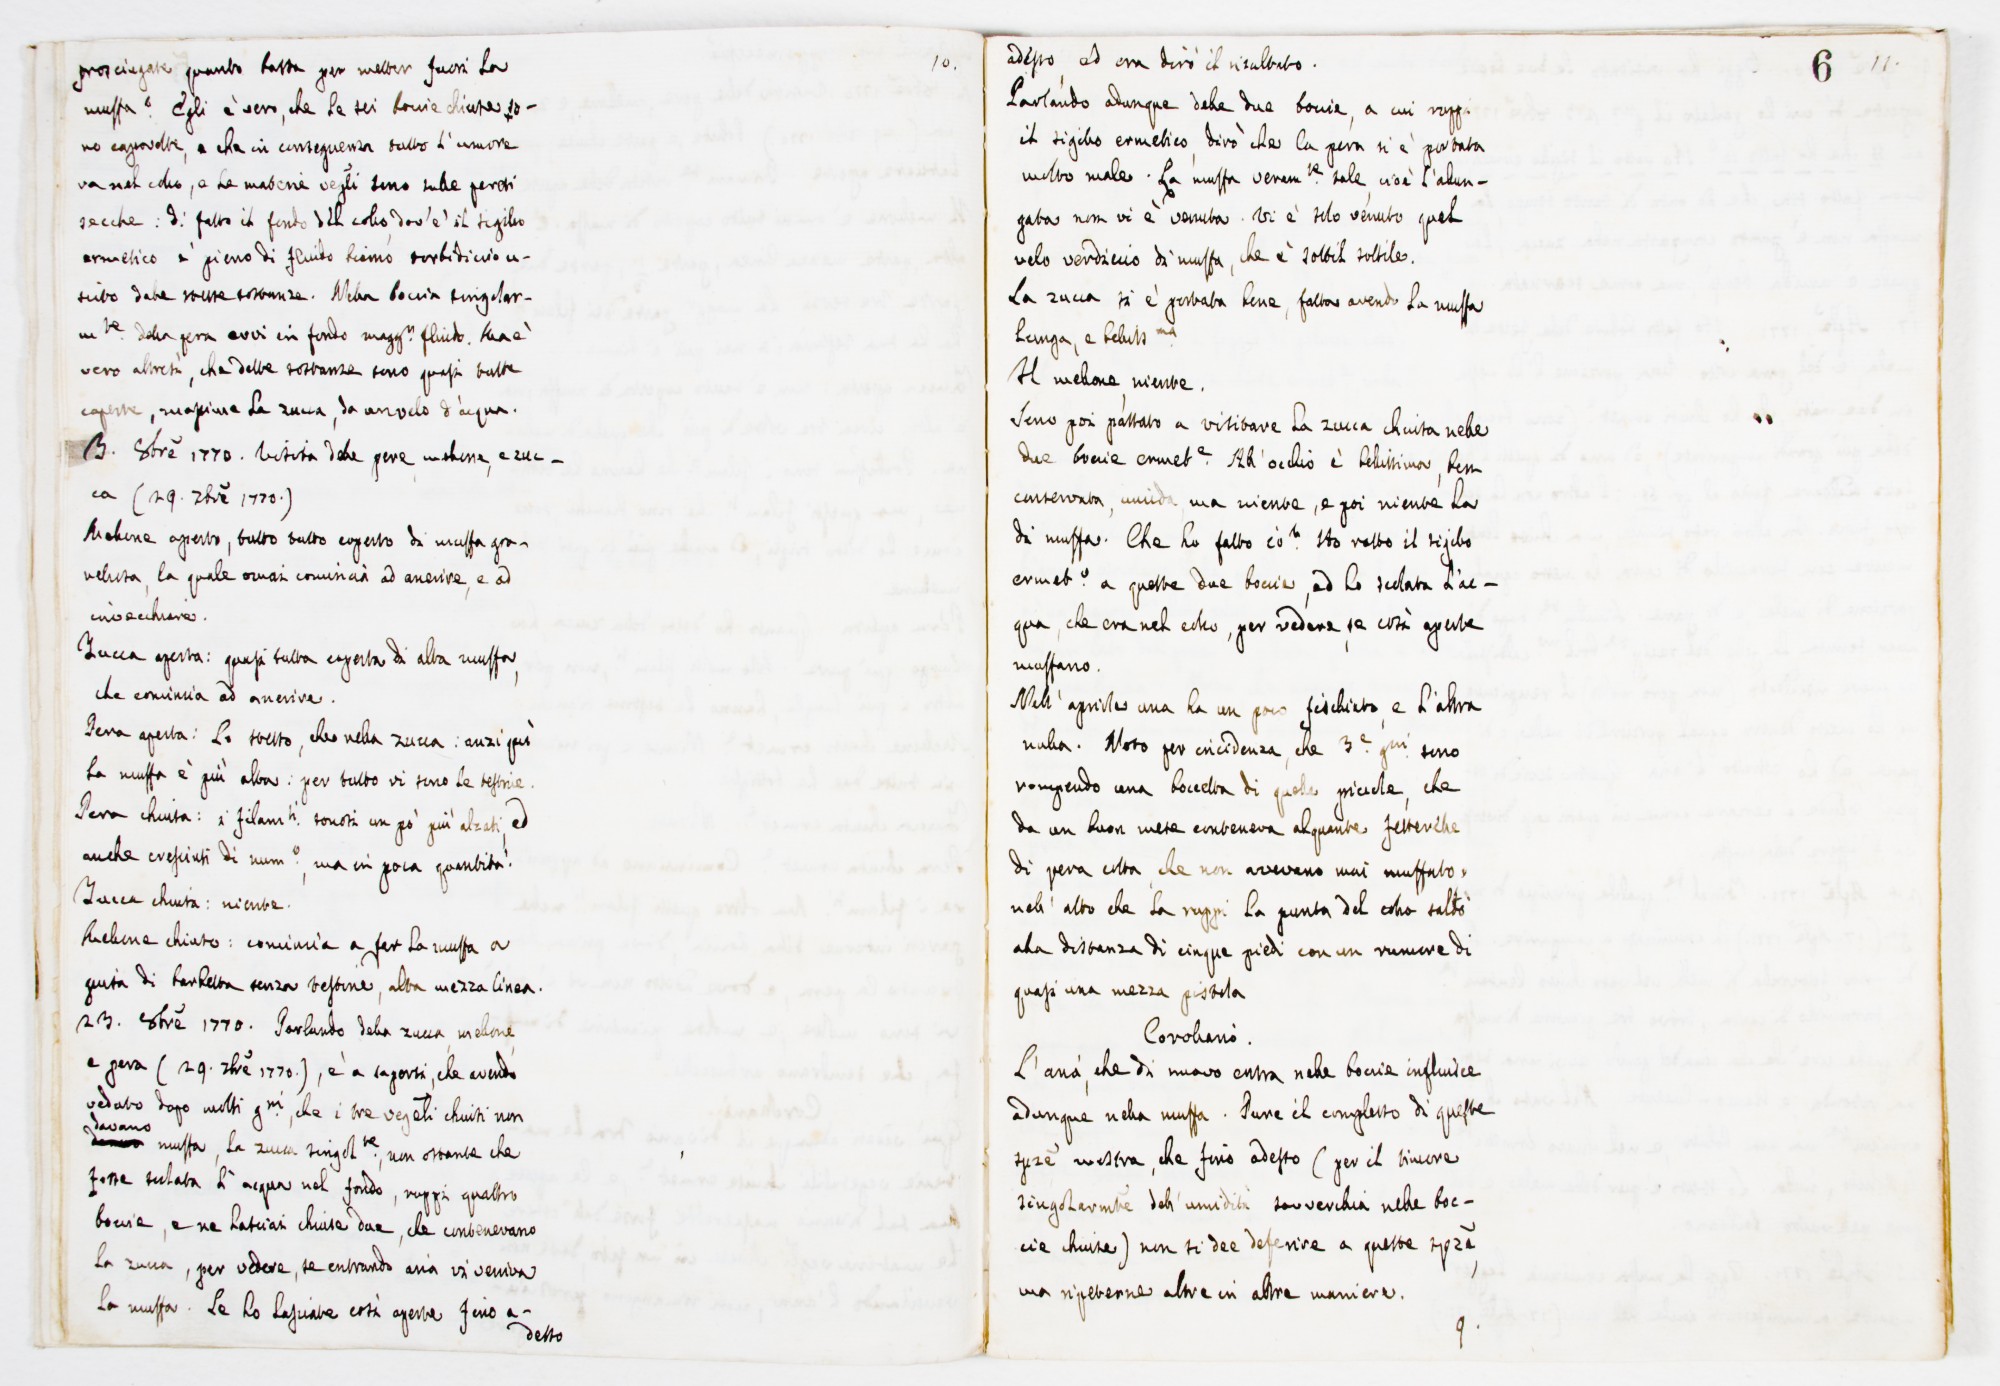 10.
prosciugate quanto basta per metter fuori la
muffa? Egli è vero, che le sei boccie chiuse so-
no capovolte, e che in conseguenza tutto l'umore
va nel collo, e le materie vegli sono sulle pareti
secche: di fatto il fondo del collo, dov'è il sigillo
ermetico è pieno di fluido torbidiccio u-
scito dalle sostanze. Nella boccia singolar-
mte. della pera avvi in fondo magg.r fluido. Ma è
vero altresì, che dette sostanze sono quasi tutte
coperte, massime la zucca, da un velo d'acqua.
13. 8bre 1770. Visita delle pere, melone, e zuc-
ca (29. 7bre 1770.)
Melone aperto, tutto tutto coperto di muffa gra-
nellosa, la quale omai comincia ad anerire, e ad
invecchiare.
Zucca aperta: quasi tutta coperta di alta muffa,
che comincia ad anerire.
Pera aperta: lo stesso, che nella zucca: anzi quì
la muffa è più alta: per tutto vi sono le testine.
Pera chiusa: i filam.ti sonosi un pò più alzati, ed
anche cresciuti di num.o, ma in poca quantità.
Zucca chiusa: niente.
Melone chiuso: comincia a far la muffa a
guisa di barbetta senza testine, alta mezza linea.
23. 8bre 1770. Parlando della zucca, melone,
e pera (29. 7bre 1770.), è a sapersi, che avendo
veduto dopo molti gni, che i tre vegeli chiusi non
davano muffa, la zucca singolte, non ostante che
fosse scolata l'acqua nel fondo, ruppi quattro
boccie, e ne lasciai chiuse due, che contenevano
la zucca, per vedere, se entrando aria vi veniva
la muffa. Le ho lasciate così aperte fino a-
desso
6 11.
adesso, ed ora dirò il risultato.
Parlando adunque delle due boccie, a cui ruppi
il sigillo ermetico, dirò che la pera si è portata
molto male. La muffa veramte. tale cioè l'alun-
gata non vi è venuta. Vi è solo venuto quel
velo verdiccio di muffa, che è sottil sottile.
La zucca si è portata bene, fatta avendo la muffa
lunga, e bellis.ma
Il melone, niente.
Sono poi passato a visitare la zucca chiusa nelle
due boccie ermet.e All'occhio è bellissima, ben
conservata, umida, ma niente, e poi niente ha
di muffa. Che ho fatto io? Ho rotto il sigillo
ermet.o a queste due boccie, ed ho scolata l'ac-
qua, che era nel collo, per vedere, se così aperte
muffano.
Nell'aprirle una ha un poco fischiato, e l'altra
nulla. Noto per incidenza, che 3.e gni sono
rompendo una boccetta di quelle piccole, che
da un buon mese conteneva alquante fetterelle
di pera cotta, che non avevano mai muffato,
nell'atto che la ruppi la punta del collo saltò
alla distanza di cinque piedi con un rumore di
quasi una mezza pistola
Corollario.
L'aria, che di nuovo entra nelle boccie influisce
adunque nella muffa. Pure il complesso di queste
spze mostra, che fino adesso (per il timore
singolarmte dell'umidità soverchia nelle boc-
cie chiuse) non si dee deferire a queste spze,
ma ripeterne altre in altre maniere.
9.